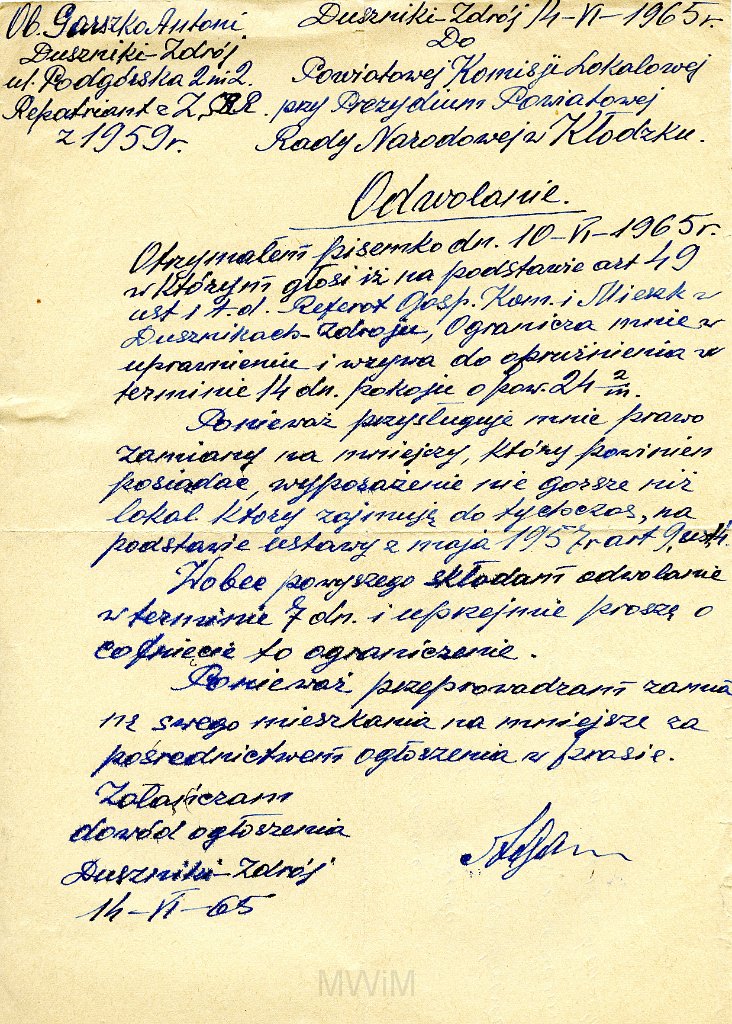 Ob. Garszko Antoni.
Duszniki-Zdrój
ul. Podgórska 2 m 2.
Repatriant z Z.S.R.R.
z 1959 r.
Duszniki-Zdrój 14-VI-1965 r.
Do
Powiatowej Komisje Lokalowej
przy Prezydium Powiatowej
Rady Narodowej w Kłodzku.
Odwołanie.
Otrzymałem pisemko dn. 10-VI-1965 r.
w którym głosi iż na podstawie art 49
ust 1 t.d. Referat Gosp. Kom. i Mieszk w
Dusznikach-Zdroju, Ogranicza mnie w
uprawnieniu i wzywa do opróżnienia w
terminie 14 dn. pokoju o pow. 24 m2.
Ponieważ przysługuje mnie prawo
zamiany na mniejszy, który powinien
posiadać, wyposażenie nie gorsze niż
lokal który zajmują do tychczas, na
podstawie ustawy z maja 1957 r art 9, ust 4.
Wobec powyszego składam odwołanie
w terminie 7 dn. i uprzejmie proszę o
cofnięcie to ograniczenie.
Ponieważ przeprowadzam zamia
nę swego mieszkania na mniejsze za
pośrednictwem ogłoszenia w prasie.
Załańczam
dowód ogłoszenia
Duszniki-Zdrój
14-VI-65
MWiM